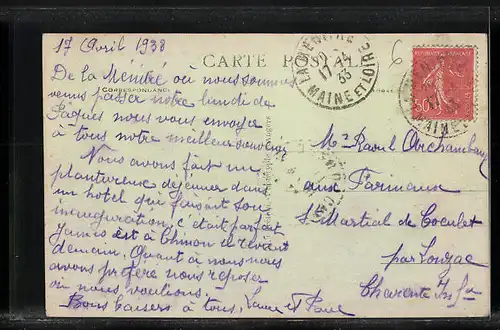 17 Avril 1933
CARTE POSTALE
CORRESPONDANCE
LA MENITRE
17-4
33
MAINE ET LOIRE
REPUBLIQUE FRANÇAISE
50c
De la Ménitré où nous sommes
venus passer notre lundi de
Pâques nous vous envoyons
à tous notre meilleur souvenir.
Nous avons fait un
plantureux déjeuner dans
un hotel qui faisait son
inauguration, c'était parfait
James est à Chinon et revient
demain. Quant à nous nous
avons préféré nous reposer
où nous voulions.
Bons baisers à tous. Laure et Paul
Mr Raoul Archambaud
aux Farinaux
St Martial de Coculet
par Jonzac
Charente Infre